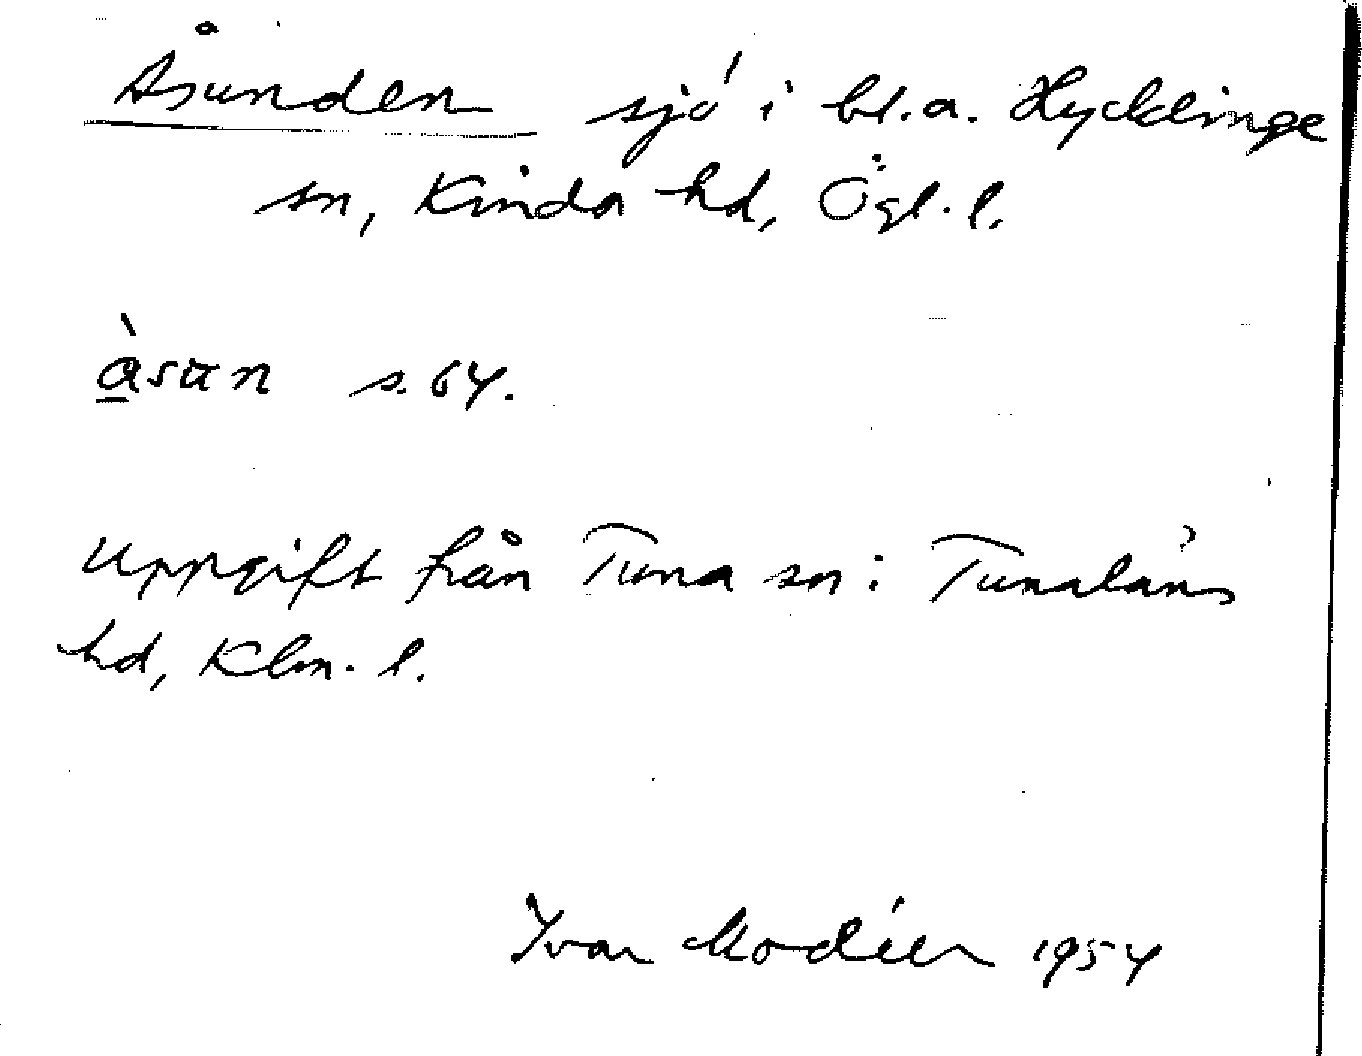 Åsunden sjö i bl.a. Hycklinge
sn, Kinda hd, Ögl. l.
àsun s. 64.
Uppgift från Tuna sn i Tunaläns
hd, Klm. l.
Ivar Modéer 1954